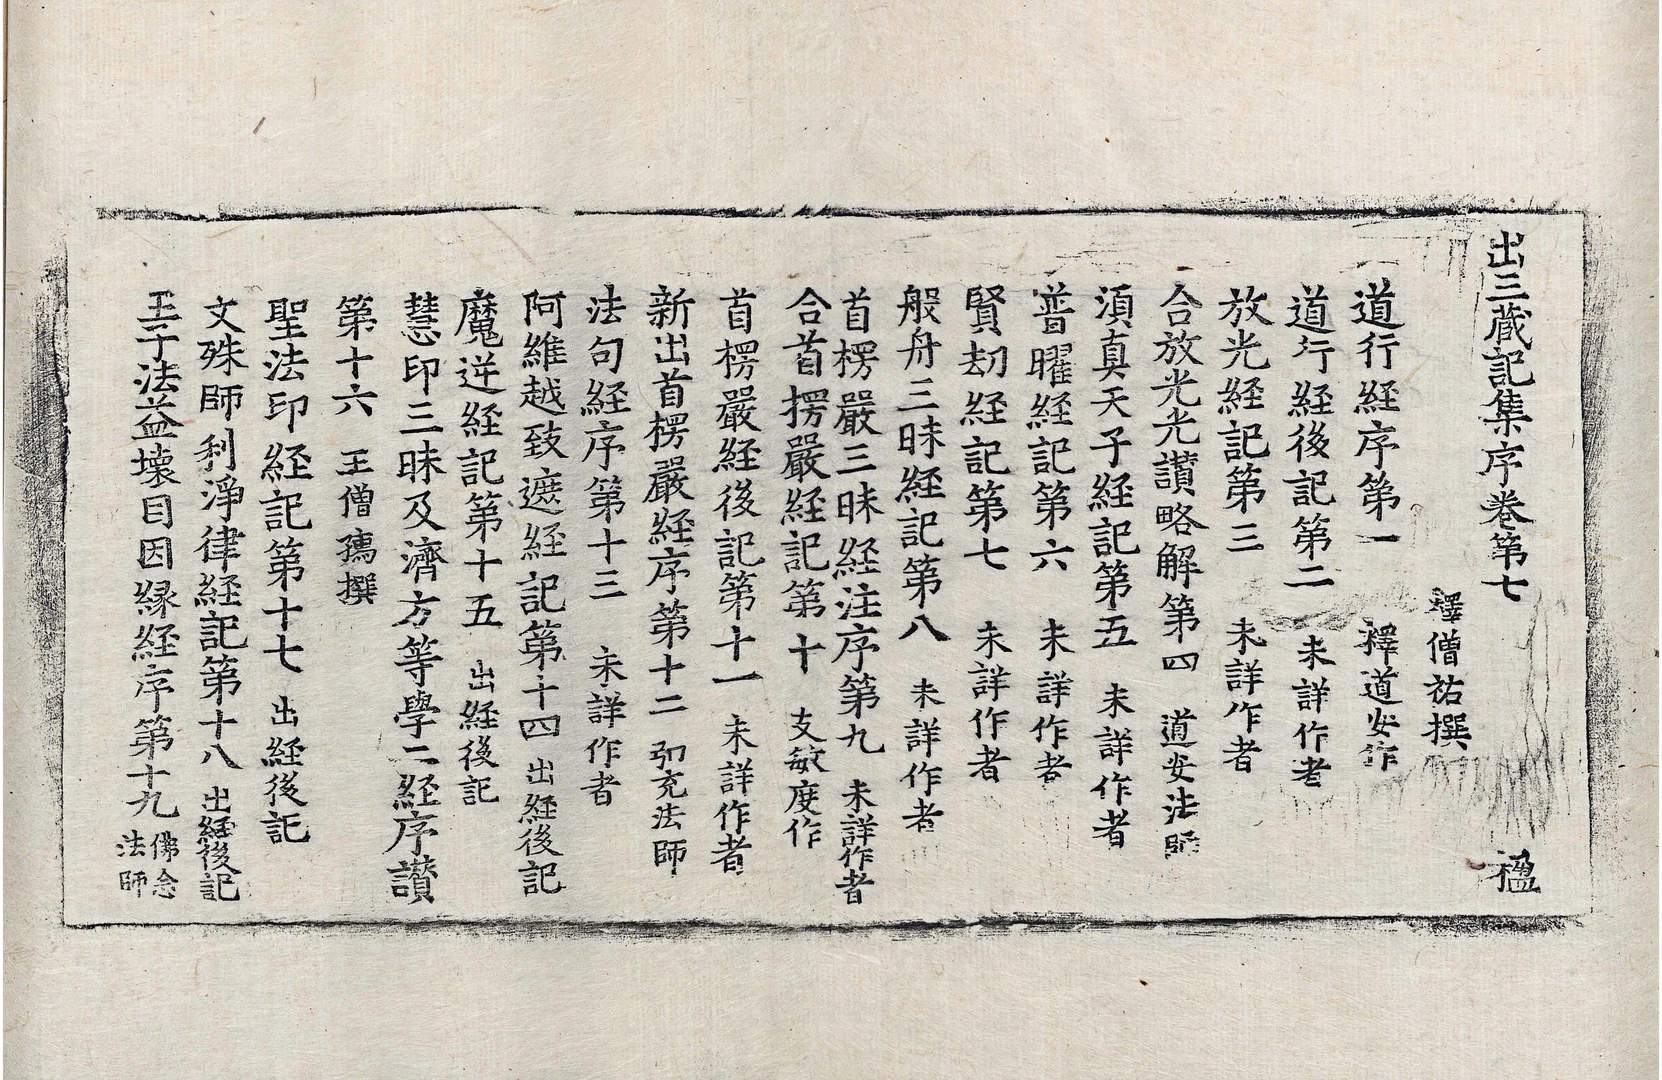 出三蔵記集序卷第七 楹
釋僧祐撰
道行経序第一 釋道安作
道行経後記第二 未詳作者
放光経記第三 未詳作者
合放光光讃略解第四 道安法師
須真天子経記第五 未詳作者
普曜経記第六 未詳作者
賢劫経記第七 未詳作者
般舟三昧経記第八 未詳作者
首楞嚴三昧経注序第九 未詳作者
合首楞嚴経記第十 支敏度作
首楞嚴経後記第十一 未詳作者
新出首楞嚴経序第十二 弘充法師
法句経序第十三 未詳作者
阿維越致遮経記第十四 出経後記
魔逆経記第十五 出経後記
慧印三昧及濟方等學二経序讃
第十六 王僧孺撰
聖法印経記第十七 出経後記
文殊師利淨律経記第十八 出経後記
王子法益壊目因縁経序第十九 佛念
法師